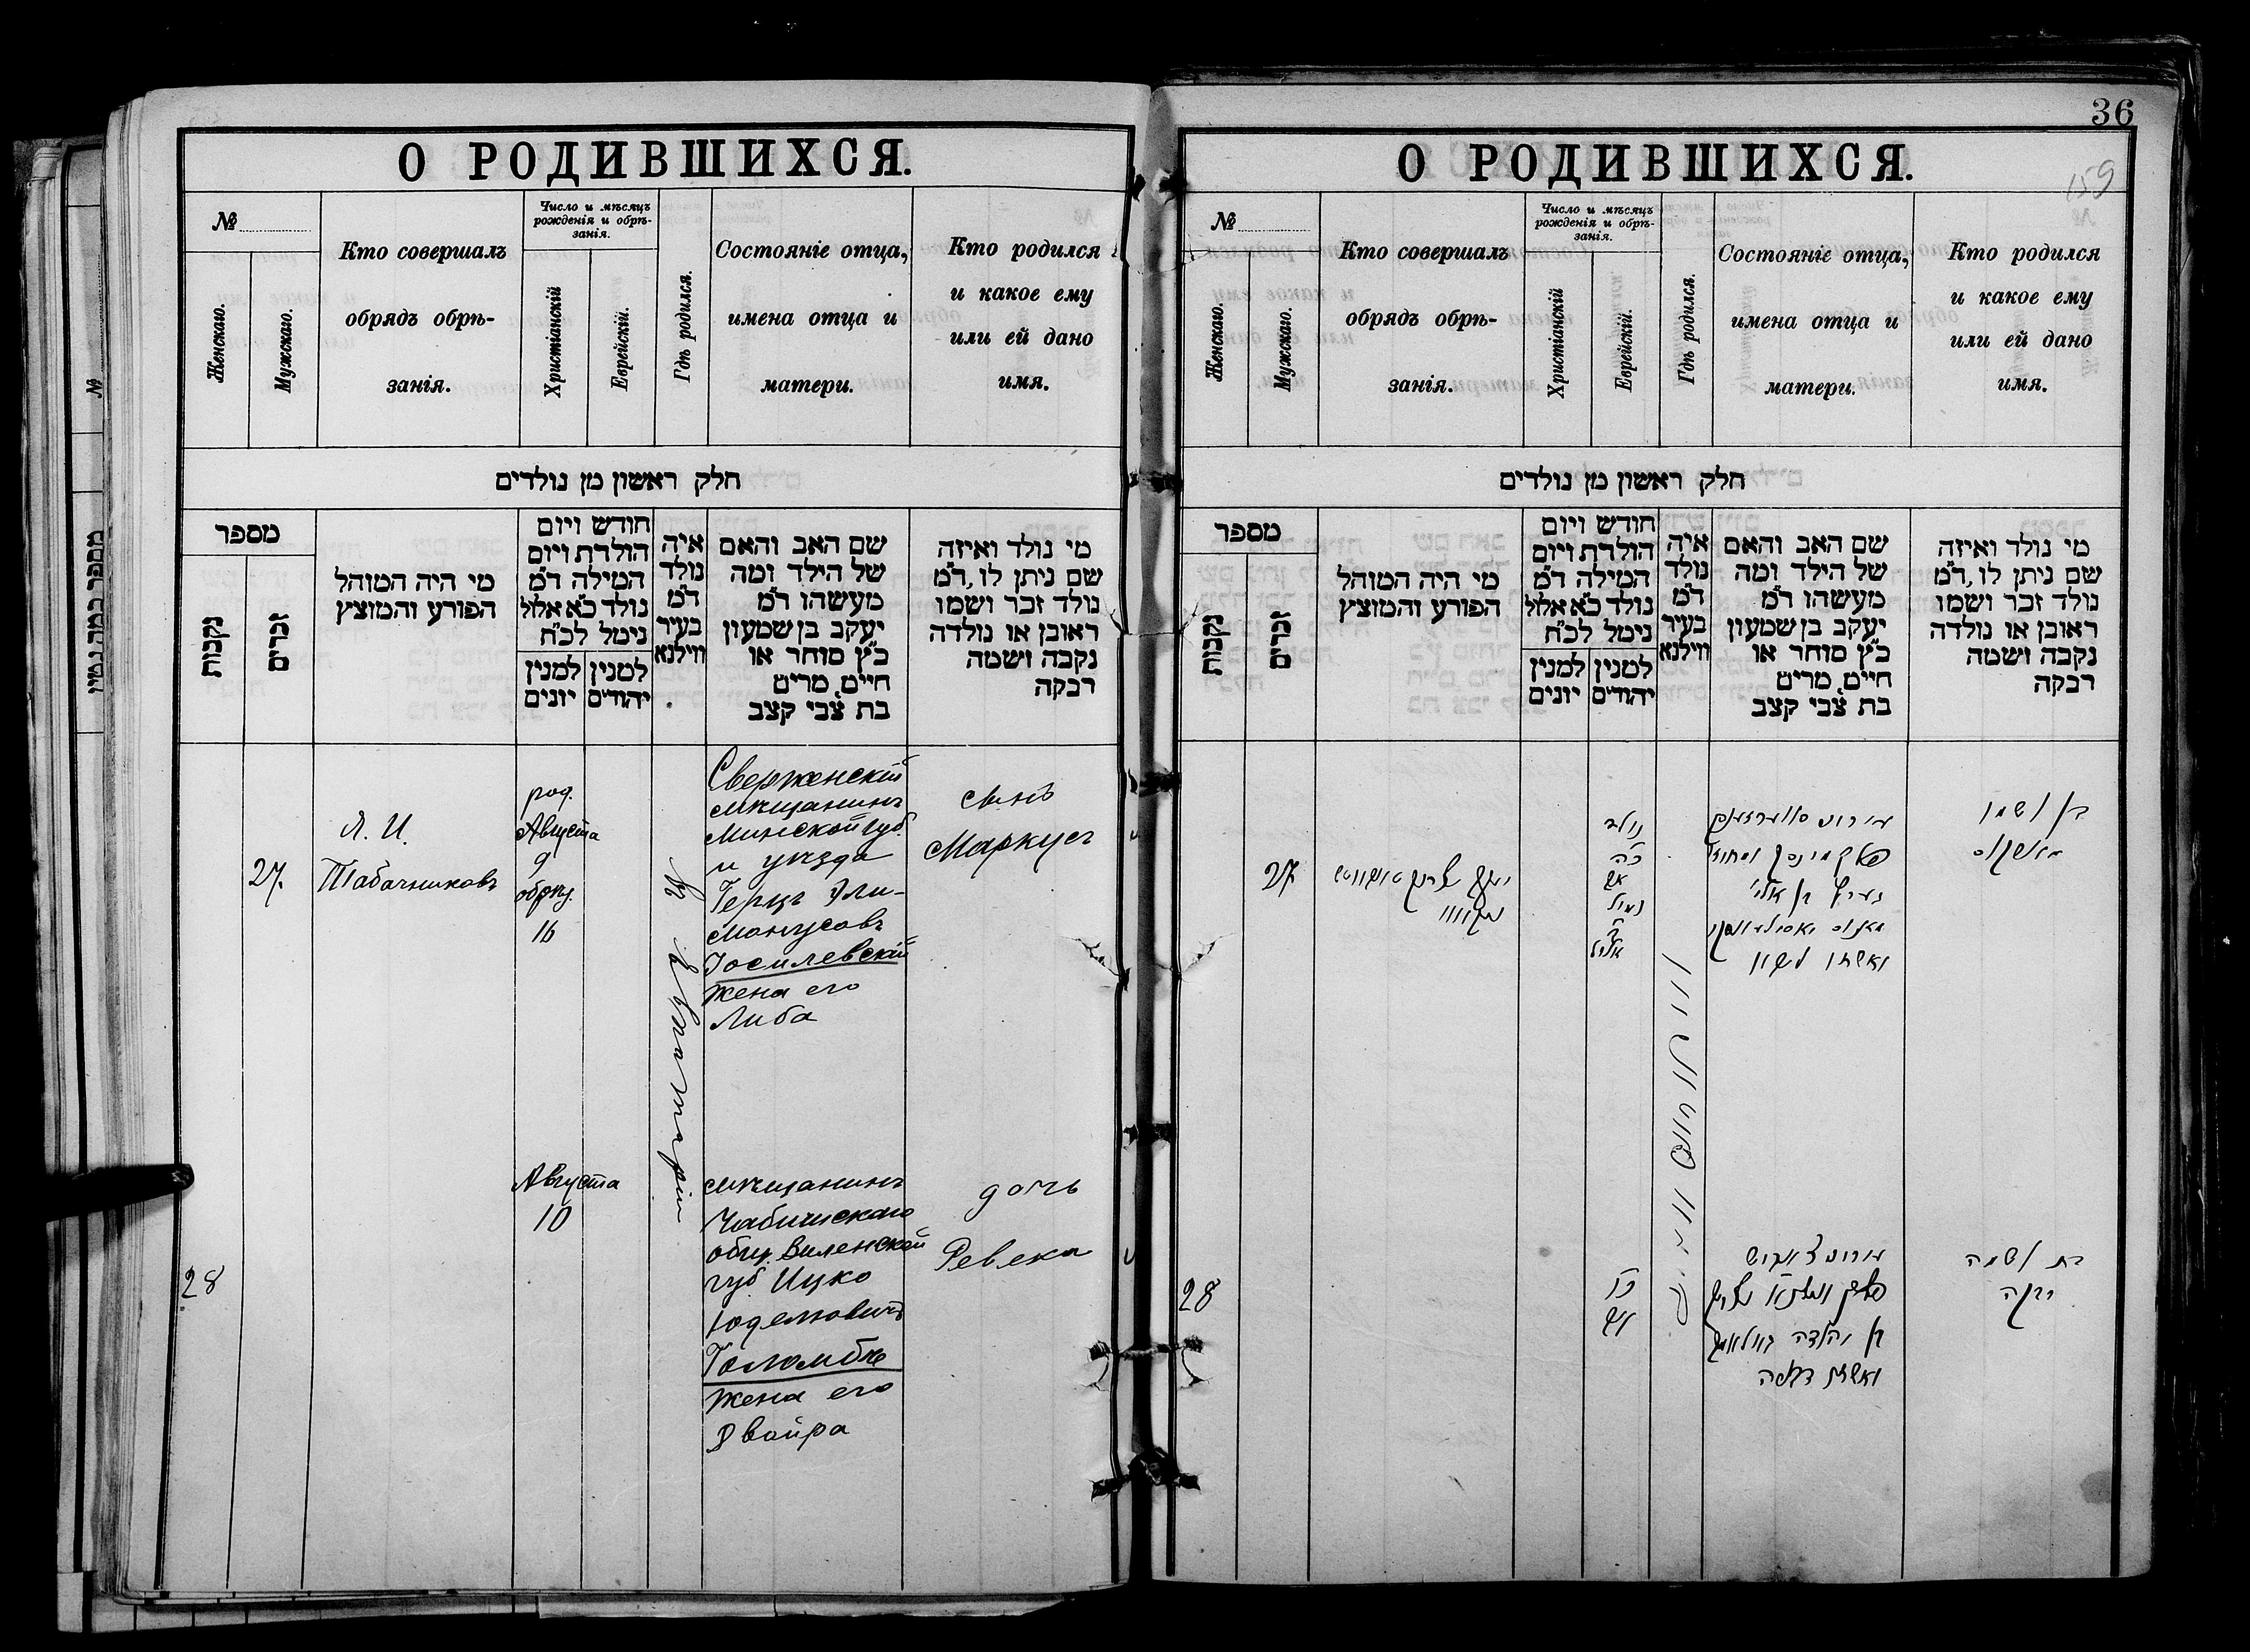 О РОДИВШИХСЯ.
№
Женскаго.
Мужскаго.
Кто совершалъ
обрядъ обрѣ-
занія.
Число и мѣсяцъ
рожденія и обрѣ-
занія.
Христіанскій
Еврейскій.
Гдѣ родился.
Состояніе отца,
имена отца и
матери.
Кто родился
и какое ему
или ей дано
имя.
חלק ראשון מן נולדים
מספר
נקבות
זכרים
מי היה המוהל
הפורע והמוצץ
חודש ויום
הולדת ויום
המילה ד"מ
נולד כ"א אלול
נימל לכ"ח
למנין יונים
למנין יהודים
איה
נולד
ד"מ
בעיר
ווילנא
שם האב והאם
של הילד ומה
מעשהו ד"מ
יעקב בן שמעון
כ"ץ סוחר או
חייט, מרים
בת צבי קצב
מי נולד ואיזה
שם ניתן לו, ד"מ
נולד זכר ושמו
ראובן או נולדה
נקבה ושמה
רבקה
27.
Л. И.
Табачниковъ
род.
Августа
9
обрѣз.
16
Сверженскій
мѣщанинъ
Минской губ.
и уѣзда
Герцъ Эли-
Манусовъ
Іосилевскій
жена его
Либа
сынъ
Маркусъ
28
Августа
10
мѣщанинъ
Чабишскаго
общ. Виленской
губ. Ицко
Юделковичъ
Голомбъ
жена его
Двойра
дочь
Ревека
36
159
О РОДИВШИХСЯ.
№
Женскаго.
Мужскаго.
Кто совершалъ
обрядъ обрѣ-
занія.
Число и мѣсяцъ
рожденія и обрѣ-
занія.
Христіанскій
Еврейскій.
Гдѣ родился.
Состояніе отца,
имена отца и
матери.
Кто родился
и какое ему
или ей дано
имя.
חלק ראשון מן נולדים
מספר
נקבות
זכרים
מי היה המוהל
הפורע והמוצץ
חודש ויום
הולדת ויום
המילה ד"מ
נולד כ"א אלול
נימל לכ"ח
למנין יונים
למנין יהודים
איה
נולד
ד"מ
בעיר
ווילנא
שם האב והאם
של הילד ומה
מעשהו ד"מ
יעקב בן שמעון
כ"ץ סוחר או
חייט, מרים
בת צבי קצב
מי נולד ואיזה
שם ניתן לו, ד"מ
נולד זכר ושמו
ראובן או נולדה
נקבה ושמה
רבקה
27
נולד
כ"ה
אב
נמול
ב'
אלול
בן ושמו
מארקוס
28
כ"ו
אב
בת ושמה
רבקה